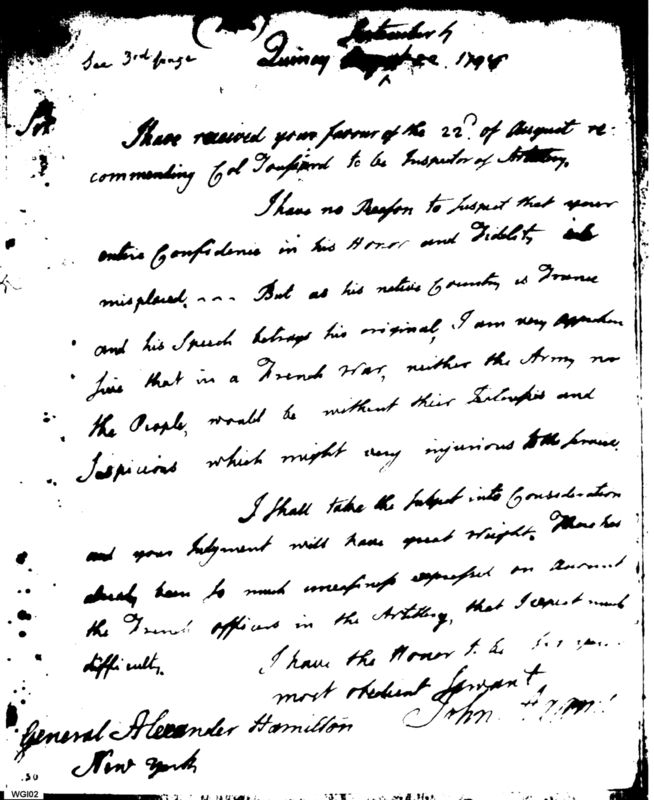 See 3rd page
September 4
Quincy August 22 1798
Sir
I have received your favour of the 22d. of August re-
commending Col Toussard to be Inspector of Artillery.
I have no Reason to suspect that your
entire Confidence in his Honor and Fidelity is
misplaced. --- But as his native Country is France
and his Speech betrays his original, I am very apprehen
sive that in a French War, neither the Army no
the People, would be without their Jealousies and
Suspicions which might very injurious to the Service.
I shall take the Subject into Consideration
and your Judgment will have great Weight. There has
already been so much uneasiness expressed on account
the French officers in the Artillery, that I expect much
difficulty.
I have the Honor to be
most obedient Servant
John Adams
General Alexander Hamilton
New York
.50
WGI02